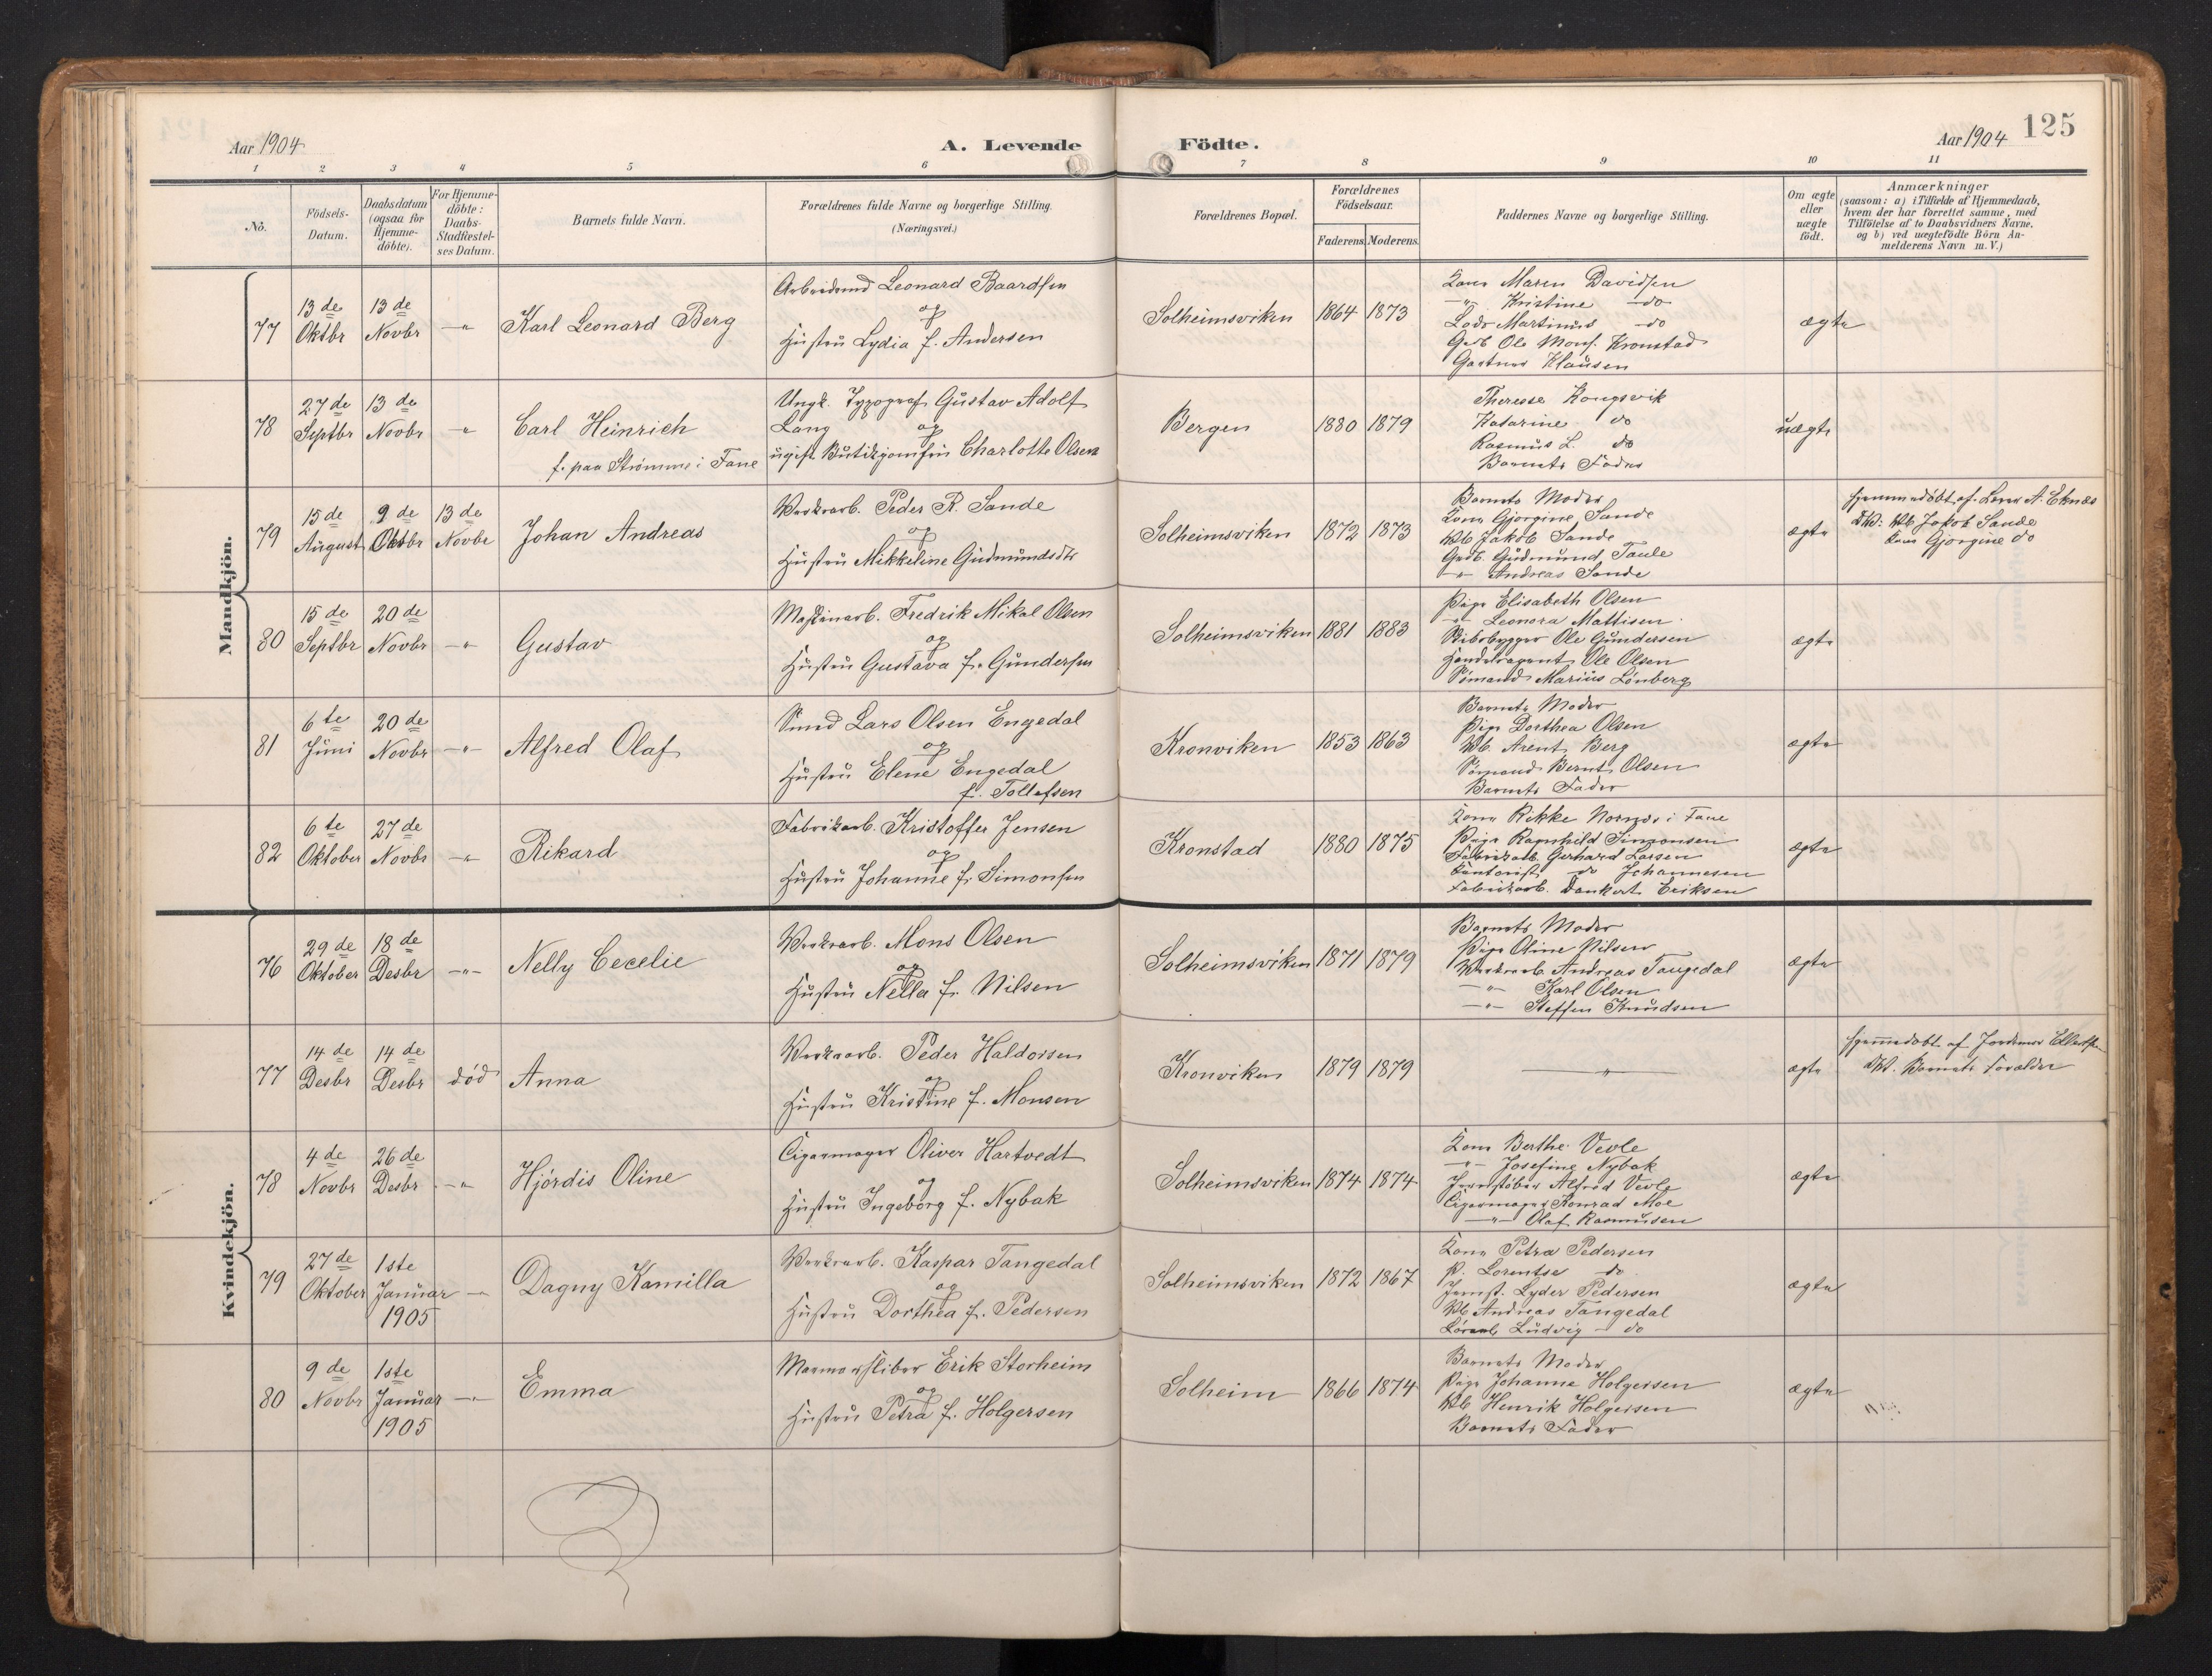 Aar 1904
A. Levende
Födte.
Aar 1904
125
1 2 3 4 5 6 7 8 9 10 11
No.
Födsels-
Datum.
Daabsdatum
(ogsaa for
Hjemme-
döbte).
For Hjemme-
döbte:
Daabs-
Stadfæstel-
ses Datum.
Barnets fulde Navn.
Forældrenes fulde Navne og borgerlige Stilling.
(Næringsvei.)
Forældrenes Bopæl.
Forældrenes
Födselsaar.
Faderens. Moderens.
Faddernes Navne og borgerlige Stilling.
Om ægte
eller
uægte
födt.
Anmærkninger
(saasom: a) i Tilfælde af Hjemmedaab,
hvem der har forrettet samme, med
Tilföielse af to Daabsvidners Navne.
og b) ved uægtefödte Börn An-
melderens Navn m. V.)
Mandkjön.
77
13de
Oktbr
13de
Novbr
-"-
Karl Leonard Berg
Arbeidsmd Leonard Baardsen
og
Hustru Lydia f. Andersen
Solheimsviken
1864
1873
Kone Maren Davidsen
-"- Kristine -do-
Lods Martinus -do
Gdb Ole Mons. Kronstad
Gartner Klausen
ægte
78
27de
Septbr
13de
Novbr
-"-
Carl Heinrich
f. paa Strömme i Fane
Ungk. Typograf Gustav Adolf
Lang og
ugift Butikjomfru Charlotte Olsen
Bergen
1880
1879
Therese Kongsvik
Katarine do
Rasmus L. do
Barnets Fader
uægte
79
15de
August
9de
Oktbr
13de
Novbr
Johan Andreas
Verksarb. Peder R. Sande
og
Hustru Mikkeline Gudmundsdtr
Solheimsviken
1872
1873
Barnets Moder
Kone Gjorgine Sande
Vb Jakob Sande
Grdb. Gudmund Taule
-"- Andreas Sande
ægte
Hjemmedøbt af Lærer A. Eknæs
DV: Vb Jakob Sande
Kone Gjorgine do
80
15de
Septbr
20de
Novbr
-"-
Gustav
Maskinarb. Fredrik Mikal Olsen
og
Hustru Gustava f. Gundersen
Solheimsviken
1881
1883
Pige Elisabeth Olsen
-"- Leonora Mattisen
Skibsbygger Ole Gundersen
Handelsagent Ole Olsen
Sömand Marius Lönberg
ægte
81
6te
Juni
20de
Novbr
-"-
Alfred Olaf
Smed Lars Olsen Engedal
og
Hustru Elene Engedal
f. Tollefsen
Kronviken
1853
1863
Barnets Moder
Pige Dorthea Olsen
Vb. Arent Berg
Sömand Bernt Olsen
Barnets Fader
ægte
82
6te
Oktober
27de
Novbr
-"-
Rikard
Fabrikarb. Kristoffer Jensen
og
Hustru Johanne f. Simonsen
Kronstad
1880
1875
Kone Rikke Nornes i Fane
Pige Ragnhild Simonsen
Fabrikarb. Gerhard Larsen
Kontorist do Johannesen
Fabrikarb. Dankert Eriksen
ægte
Kvindekjön.
76
29de
Oktober
18de
Desbr
-"-
Nelly Cecelie
Verksarb. Mons Olsen
og
Hustru Nella f. Nilsen
Solheimsviken
1871
1879
Barnets Moder
Pige Oline Nilsen
Verksarb. Andreas Tangedal
-"- Karl Olsen
-"- Steffen Knudsen
ægte
77
14de
Desbr
14de
Desbr
död
Anna
Verksarb. Peder Haldorsen
og
Hustru Kristine f. Monsen
Kronviken
1879
1879
-"-
ægte
Hjemmedøbt af Jordemor Ellertsen
DV. Barnets Forældre
78
4de
Novbr
26de
Desbr
-"-
Hjördis Oline
Cigarmager Oliver Hartvedt
og
Hustru Ingeborg f. Nybak
Solheimsviken
1874
1874
Kone Berthe Vevle
-"- Josefine Nybak
Jernstöber Alfred Vevle
Cigarmager Konrad Moe
-"- Olaf Rasmusen
ægte
79
27de
Oktober
1ste
Januar
1905
-"-
Dagny Kamilla
Verksarb. Kaspar Tangedal
og
Hustru Dorthea f. Pedersen
Solheimsviken
1872
1867
Kone Petra Pedersen
P. Lorentse do
Jernst. Lyder Pedersen
Vb Andreas Tangedal
Ludvig - do
ægte
80
9de
Novbr
1ste
Januar
1905
-"-
Emma
Marmorsliber Erik Storheim
og
Hustru Petra f. Holgersen
Solheim
1866
1874
Barnets Moder
Pige Johanne Holgersen
Vb Henrik Holgersen
Barnets Fader
ægte